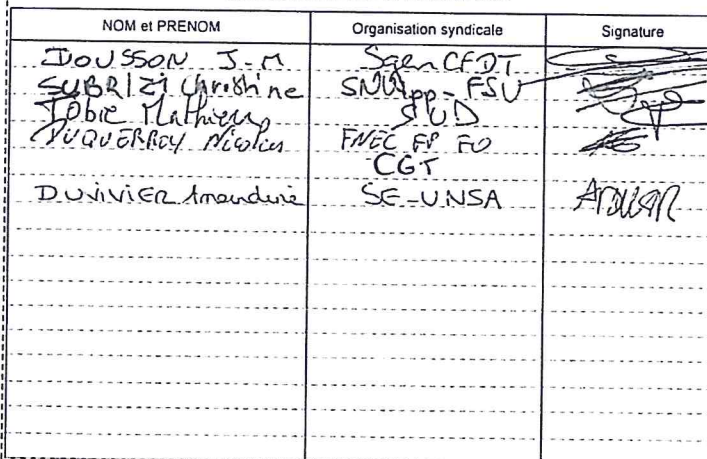 NOM et PRENOM Organisation syndicale Signature
DOUSSON J-M Sgen CFDT
SUBRIZI Christine SNUipp-FSU
Tobie Mathieu SUD
DUQUERROY Nicolas FNEC FP FO
CGT
DUVIVIER Amandine SE-UNSA